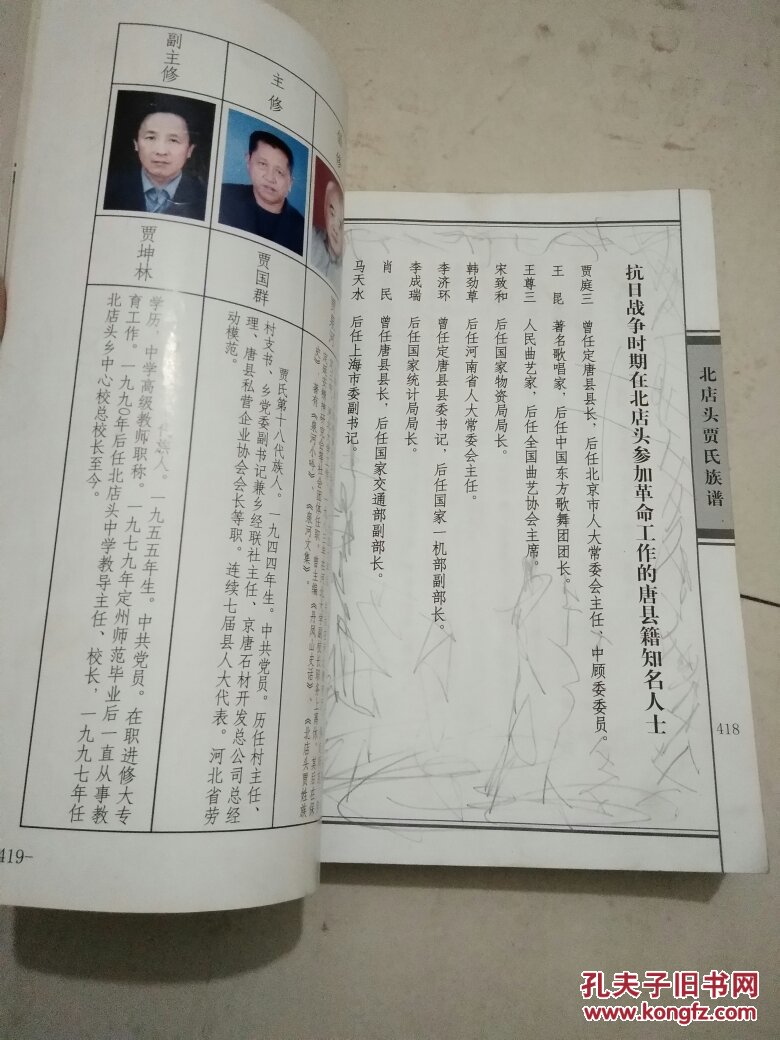 北店头贾氏族谱
418
抗日战争时期在北店头参加革命工作的唐县籍知名人士
贾庭三 曾任定唐县县长，后任北京市人大常委会主任、中顾委委员。
王昆 著名歌唱家，后任中国东方歌舞团团长。
王尊三 人民曲艺家，后任全国曲艺协会主席。
宋致和 后任国家物资局局长。
韩劲草 后任河南省人大常委会主任。
李济环 曾任定唐县县委书记，后任国家一机部副部长。
李成瑞 后任国家统计局局长。
肖民 曾任唐县县长，后任国家交通部副部长。
马天水 后任上海市委副书记。
著有《泉河小咏》、《泉河文集》。
主修
贾国群
贾氏第十八代族人。一九四四年生。中共党员。历任村主任、
村支书、乡党委副书记兼乡经联社主任、京唐石材开发总公司总经
理、唐县私营企业协会会长等职。连续七届县人大代表。河北省劳
动模范。
副主修
贾坤林
族人。一九五五年生。中共党员。在职进修大专
学历，中学高级教师职称。一九七九年定州师范毕业后一直从事教
育工作。一九九〇年后任北店头中学教导主任、校长，一九九七年任
北店头乡中心校总校长至今。
419-
孔夫子旧书网
www.kongfz.com